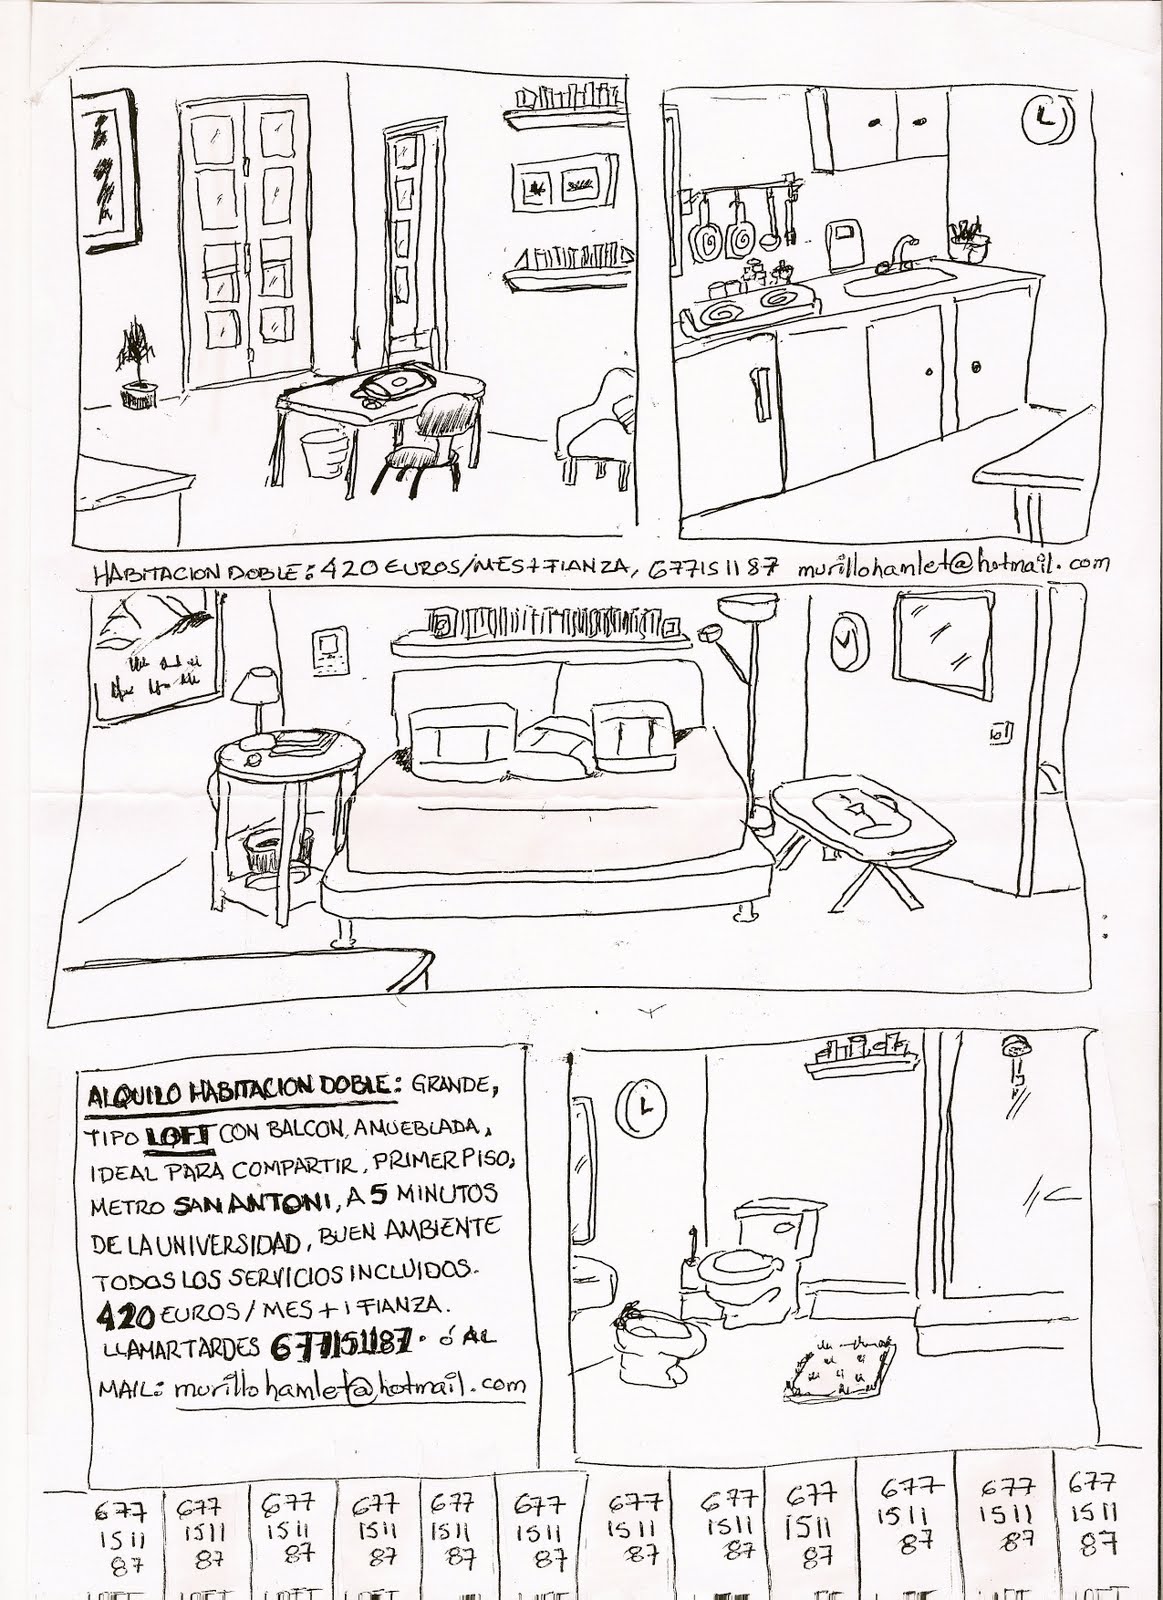 HABITACION DOBLE: 420 EUROS/MES+FIANZA, 677151187 murillohamlet@hotmail.com
ALQUILO HABITACION DOBLE: GRANDE,
TIPO LOFT CON BALCON, AMUEBLADA,
IDEAL PARA COMPARTIR, PRIMER PISO,
METRO SAN ANTONI, A 5 MINUTOS
DE LA UNIVERSIDAD, BUEN AMBIENTE
TODOS LOS SERVICIOS INCLUIDOS.
420 EUROS/MES + 1 FIANZA.
LLAMAR TARDES 677151187. ó AL
MAIL: murillohamlet@hotmail.com
677 677 677 677 677 677 677 677 677 677 677 677
1511 1511 1511 1511 1511 1511 1511 1511 1511 1511 1511 1511
87 87 87 87 87 87 87 87 87 87 87 87